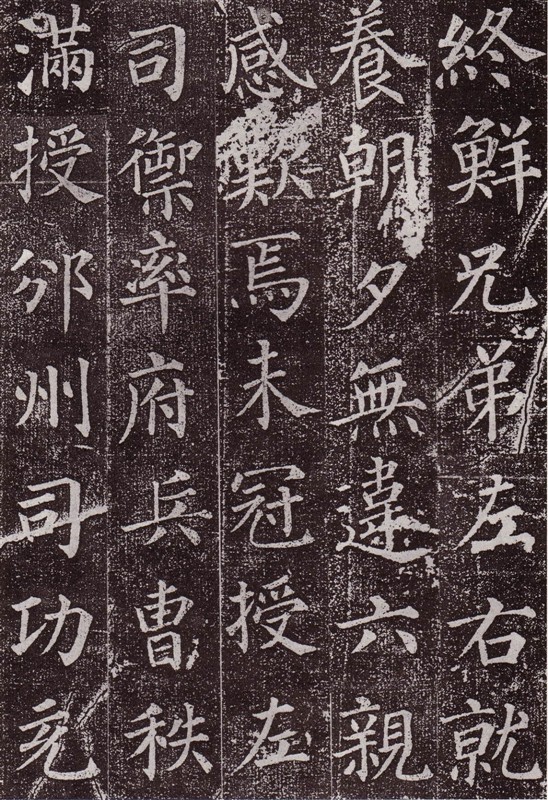 終鮮兄弟左右就
養朝夕無違六親
感歎焉未冠授左
司禦率府兵曹秩
滿授邠州司功兖